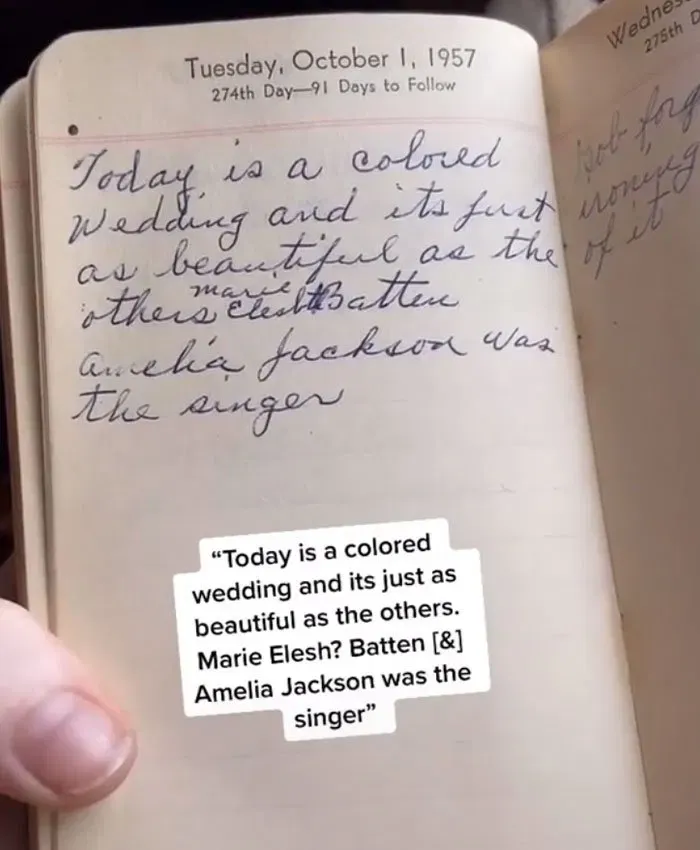 Tuesday, October 1, 1957
274th Day—91 Days to Follow
Today is a colored
wedding and its just
as beautiful as the
others
marie
Batten
Amelia Jackson was
the singer
Wednes
275th D
Bob forg
ironing
of it
“Today is a colored
wedding and its just as
beautiful as the others.
Marie Elesh? Batten [&]
Amelia Jackson was the
singer”